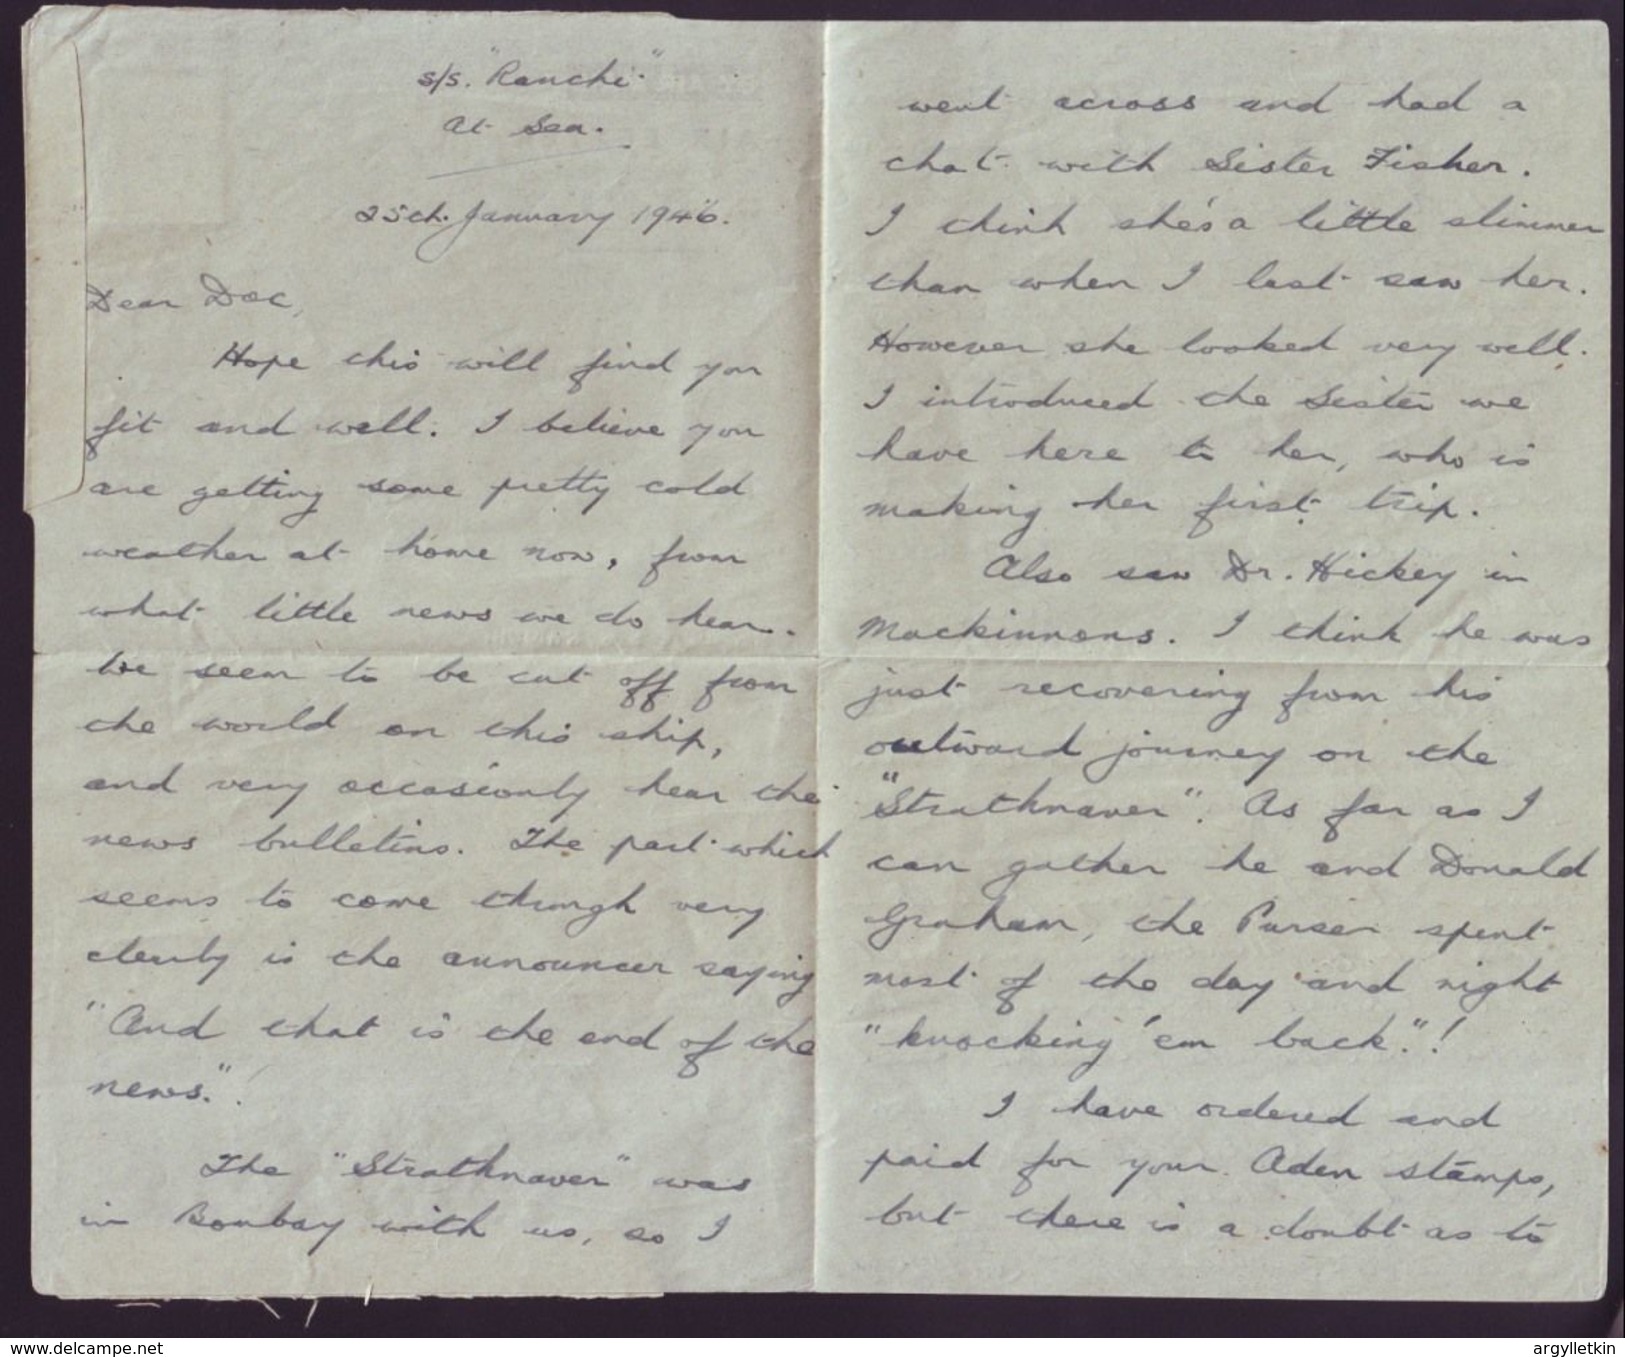 s/s. "Ranchi"
At Sea.
25th. January 1946.
Dear Doc,
Hope this will find you
fit and well. I believe you
are getting some pretty cold
weather at home now, from
what little news we do hear.
We seem to be cut off from
the world on this ship,
and very occasionly hear the
news bulletins. The part which
seems to come through very
clearly is the announcer saying
"And that is the end of the
news."!
The "Strathnaver" was
in Bombay with us, so I
went across and had a
chat with Sister Fisher.
I think she's a little slimmer
than when I last saw her.
However she looked very well.
I introduced the Sister we
have here to her, who is
making her first trip.
Also saw Dr. Hickey in
Mackinnons. I think he was
just recovering from his
outward journey on the
"Strathnaver". As far as I
can gather he and Donald
Graham, the Purser spent
most of the day and night
"knocking 'em back"!
I have ordered and
paid for your Aden stamps,
but there is a doubt as to
delcampe.net
argylletkin